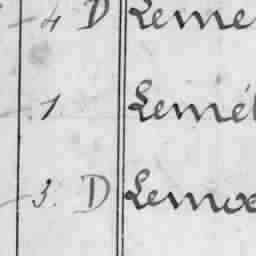 - 4 D Leme
- 1 Lemél
- 3. D Lemoe